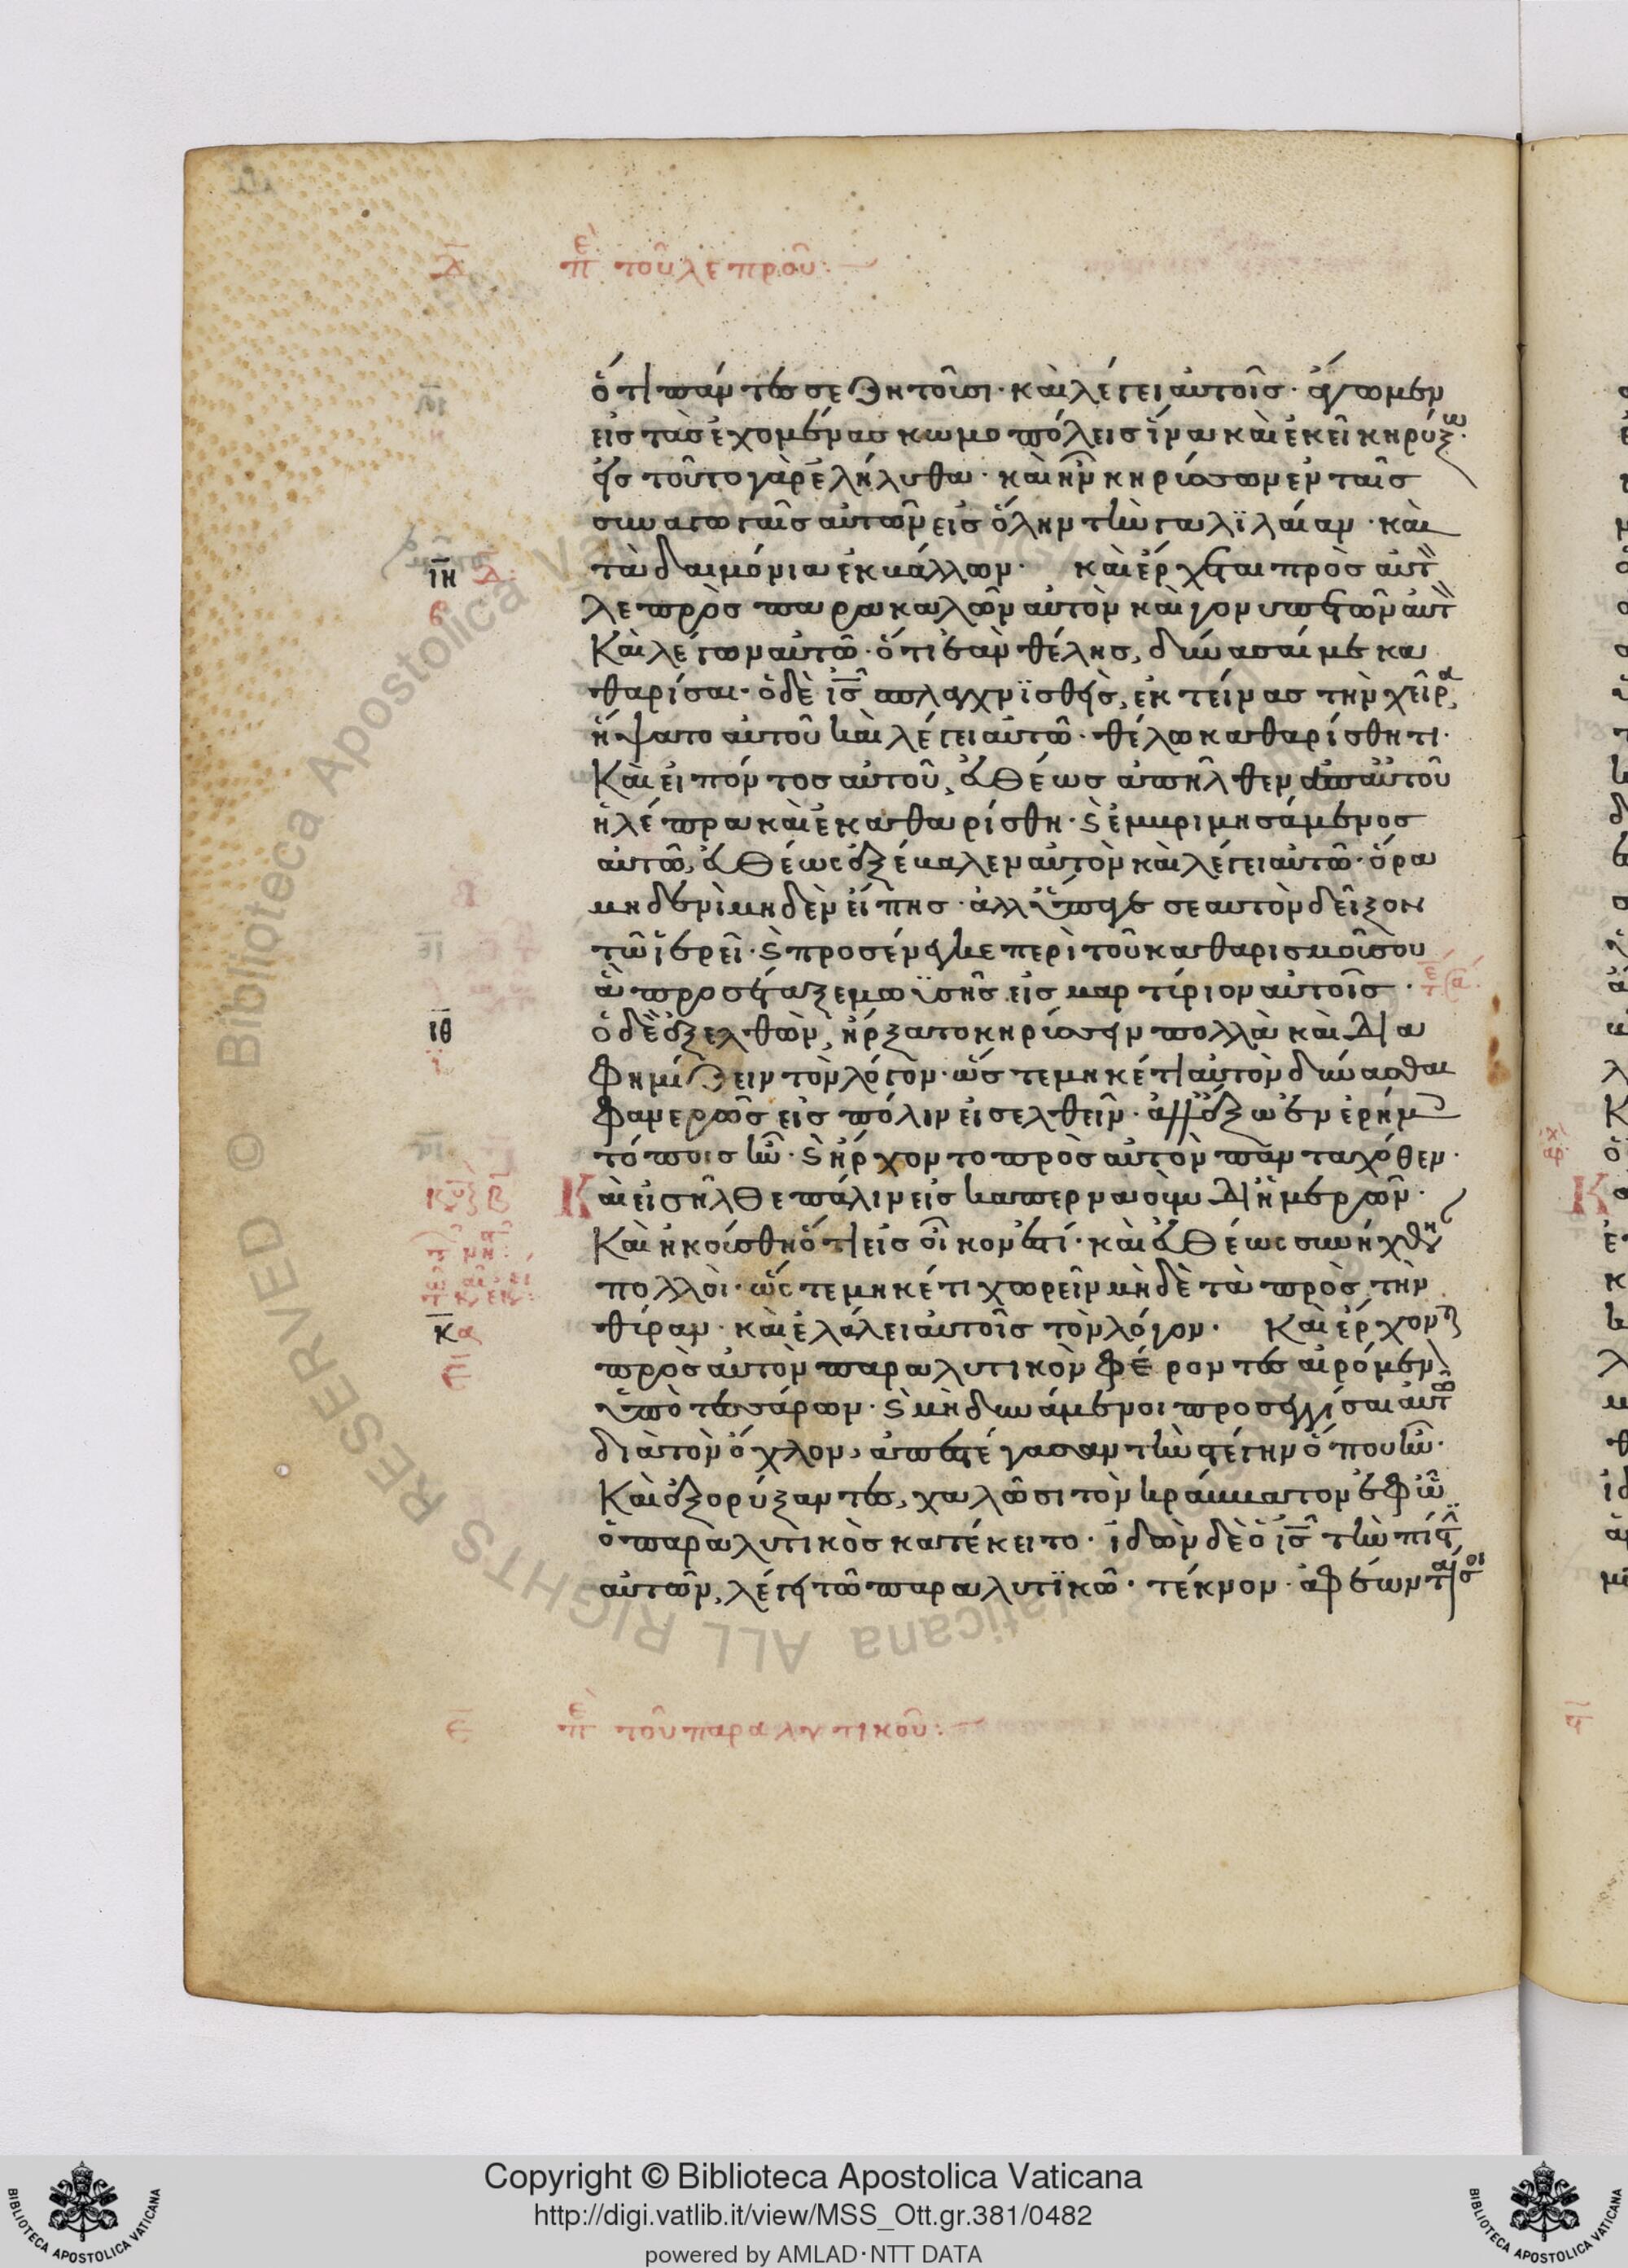 δ ἐπὶ τοῦ λεπροῦ:
ὅτι πάντες σε ζητοῦσι· καὶ λέγει αὐτοῖς· ἄγωμεν
εἰς τὰς ἐχομένας κωμοπόλεις ἵνα καὶ ἐκεῖ κηρύξω·
εἰς τοῦτο γὰρ ἐλήλυθα· καὶ ἦν κηρύσσων ἐν ταῖς
συναγωγαῖς αὐτῶν εἰς ὅλην τὴν γαλϊλαίαν· καὶ
ιη δ τὰ δαιμόνια ἐκβάλλων· καὶ ἔρχεται πρὸς αὐτ
λεπρὸς παρακαλῶν αὐτὸν καὶ γονυπετῶν αὐτ
Καὶ λέγων αὐτῶ· ὅτι ἐὰν θέλης, δύνασαί με κα
θαρίσαι· ὁ δὲ ις σπλαγχνϊσθεὶς, ἐκτείνας τὴν χεῖρα,
ἥψατο αὐτοῦ καὶ λέγει αὐτῶ· θέλω καθαρίσθητι·
Καὶ εἰπόντος αὐτοῦ, εὐθέως ἀπῆλθεν ἀπ αὐτοῦ
ἡ λέπρα καὶ ἐκαθαρίσθη· καὶ ἐμβριμησάμενος
αὐτῶ, εὐθέως ἐξέβαλεν αὐτὸν καὶ λέγει αὐτῶ· ὅρα
μηδενὶ μηδὲν εἴπης· ἀλλ ὕπαγε σεαυτὸν δεῖξον
τῶ ἱερεῖ· καὶ προσένεγκε περὶ τοῦ καθαρισμοῦ σου
ἃ προσέταξε μωϋσῆς εἰς μαρτύριον αὐτοῖς·
ιθ ὁ δὲ ἐξελθὼν, ἤρξατο κηρύσσειν πολλὰ καὶ δια
φημίζειν τὸν λόγον· ὥστε μηκέτι αὐτὸν δύνασθαι
φανερῶς εἰς πόλιν εἰσελθεῖν· ἀλλ ἔξω ἐν ἐρήμοις
τόποις ἦν· καὶ ἤρχοντο πρὸς αὐτὸν πανταχόθεν·
Καὶ εἰσῆλθε πάλιν εἰς καπερναοὺμ δι ἡμερῶν·
Καὶ ἠκούσθη ὅτι εἰς οἶκον ἐστί· καὶ εὐθέως συνήχθησαν
πολλοὶ· ὥστε μηκέτι χωρεῖν μὴδὲ τὰ πρὸς τὴν
κα θύραν· καὶ ἐλάλει αὐτοῖς τὸν λόγον· Καὶ ἔρχονται
ε πρὸς αὐτὸν παραλυτικὸν φέροντες αἰρόμενον
ὑπὸ τεσσάρων· καὶ μὴ δυνάμενοι προσεγγίσαι αὐτῶ
διὰ τὸν ὄχλον, ἀπεστέγασαν τὴν στέγην ὅπου ἦν·
Καὶ ἐξορύξαντες, χαλῶσι τὸν κράββατον ἐφ ὧ
ὁ παραλυτικὸς κατέκειτο· ἰδὼν δὲ ὁ ις τὴν πίστιν
αὐτῶν, λέγει τῶ παραλυτϊκῶ· τέκνον· ἀφέωνταί σοι
ε ἐπὶ τοῦ παραλυτικοῦ:
Copyright © Biblioteca Apostolica Vaticana
http://digi.vatlib.it/view/MSS_Ott.gr.381/0482
powered by AMLAD·NTT DATA
BIBLIOTECA APOSTOLICA VATICANA
BIBLIOTECA APOSTOLICA VATICANA
Biblioteca Apostolica Vaticana ALL RIGHTS RESERVED ©